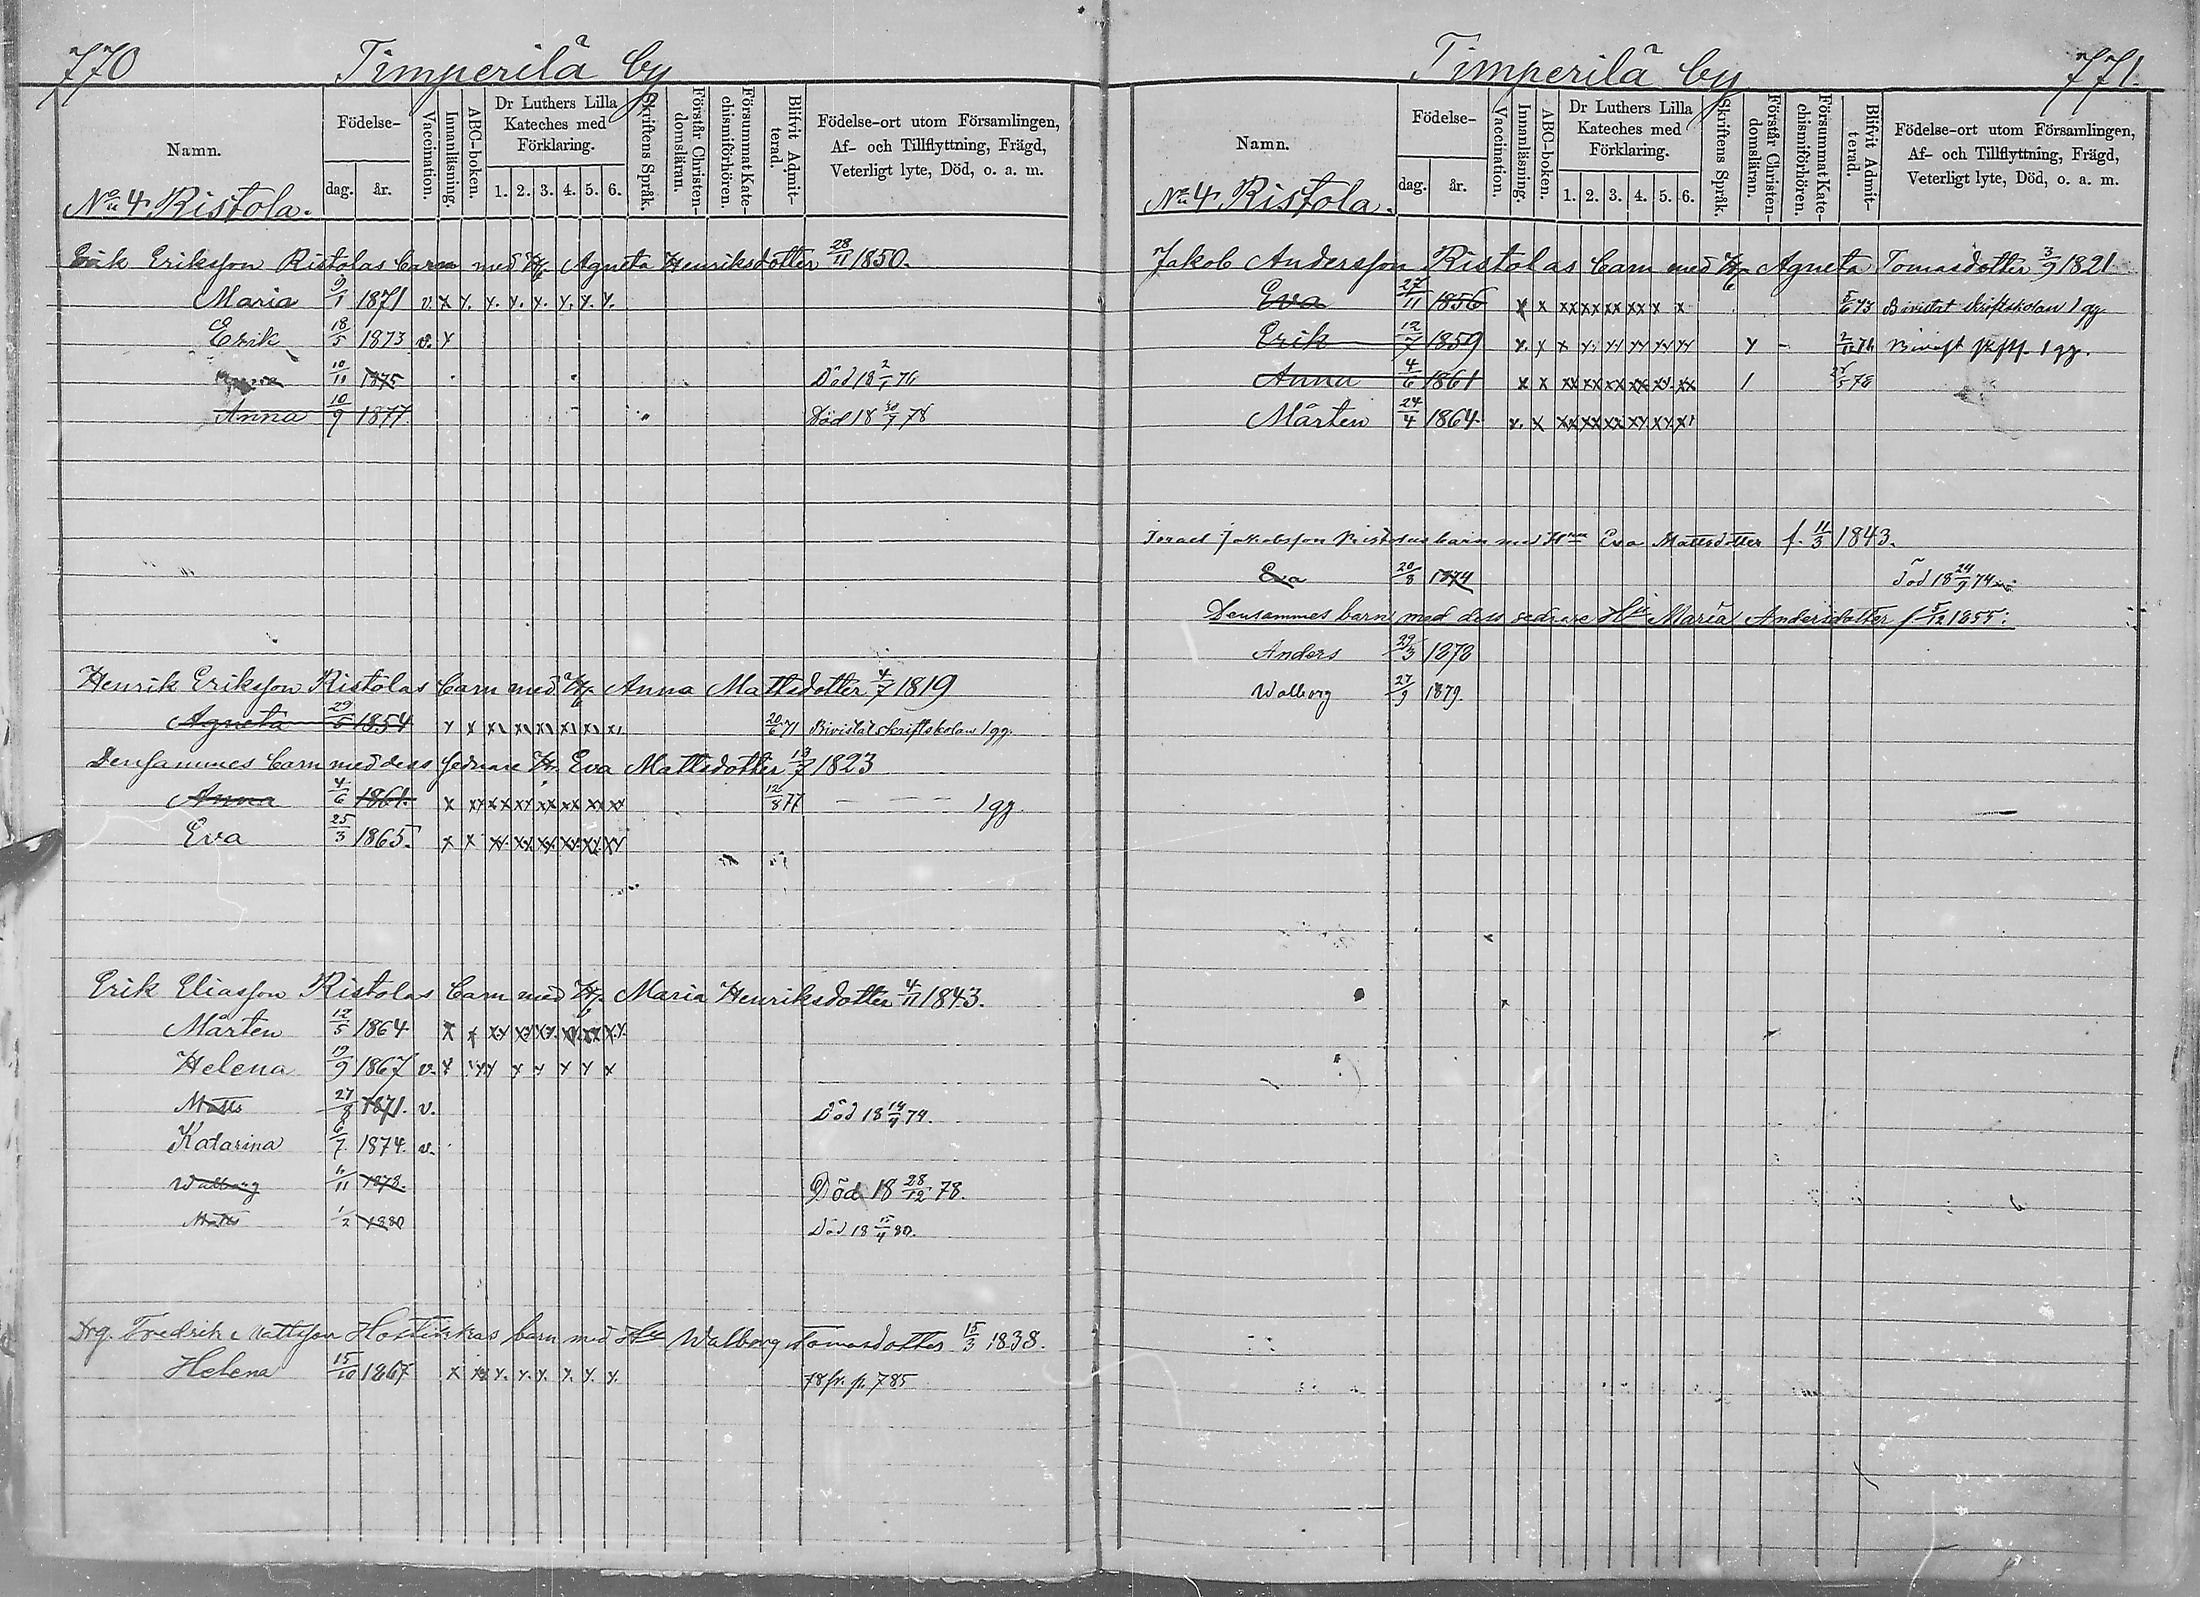 770 Timperilä by
Namn. Födelse- dag. år. Vaccination. Innanläsning. ABC-boken. Dr Luthers Lilla Kateches med Förklaring. 1. 2. 3. 4. 5. 6. Skriftens Språk. Förstår Christendomsläran. Försummat Katechismiförhören. Blifvit Admitterad. Födelse-ort utom Församlingen, Af- och Tillflyttning, Frägd, Veterligt lyte, Död, o. a. m.
No 4 Ristola.
Erik Eriksson Ristolas barn med H. Agneta Henriksdotter 28/11 1850.
Maria 9/1 1871 v. x x. x. x. x. x. x. x.
Erik 18/5 1873 v. x
10/11 1875 Död 18 2/1 76
Anna 10/9 1877 Död 18 30/7 78
Henrik Eriksson Ristolas barn med H. Anna Mattsdotter 4/7 1819
Agneta 29/5 1854 x x xx xx xx xx xx xx 20/6 71 Bivistat skriftskolan 1 gg.
Densammes barn med dess sednare H. Eva Mattsdotter 13/7 1823
Anna 4/6 1861. x xx xx xx xx xx xx xx /8 77 — — — 1 gg.
Eva 25/3 1865. x x xx xx xx xx xx xx
Erik Eliasson Ristolas barn med H. Maria Henriksdotter 4/11 1843.
Mårten 12/5 1864 x x xx xx xx xx xx xx
Helena 19/9 1867 v. x xx x x x x x
Matts 27/8 1871. v. Död 18 14/9 74.
Katarina 6/7 1874. v.
Walborg 11/11 1878. Död 18 28/12 78.
Matts 1/2 1880 Död 18 15/4 80.
Drg. Fredrik Mattsson barn med Hu Walborg Tomasdotter 15/3 1838.
Helena 15/10 1867 x xx x. x. x. x. x. x. 78 fr. p. 785
Timperilä by 771.
Namn. Födelse- dag. år. Vaccination. Innanläsning. ABC-boken. Dr Luthers Lilla Kateches med Förklaring. 1. 2. 3. 4. 5. 6. Skriftens Språk. Förstår Christendomsläran. Försummat Katechismiförhören. Blifvit Admitterad. Födelse-ort utom Församlingen, Af- och Tillflyttning, Frägd, Veterligt lyte, Död, o. a. m.
No 4 Ristola.
Jakob Andersson Ristolas barn med H. Agneta Tomasdotter 3/9 1821
Eva 27/11 1856 x x xx xx xx xx x x 5/6 73 Bivistat skriftskolan 1 gg.
Erik 12/7 1859 x. x x xx xx xx xx xx x - 1 gg.
Anna 4/6 1861 x x xx xx xx xx xx xx 1 78
Mårten 24/4 1864 x. x xx xx xx xx xx x
Israel Jakobsson Ristolas barn med Hu Eva Mattsdotter f. 11/3 1843.
Eva 20/8 1874 Död 18 24/9 74
Densammes barn med dess sednare Hu Maria Andersdotter f 5/12 1855.
Anders 29/3 1878
Walborg 27/9 1879.